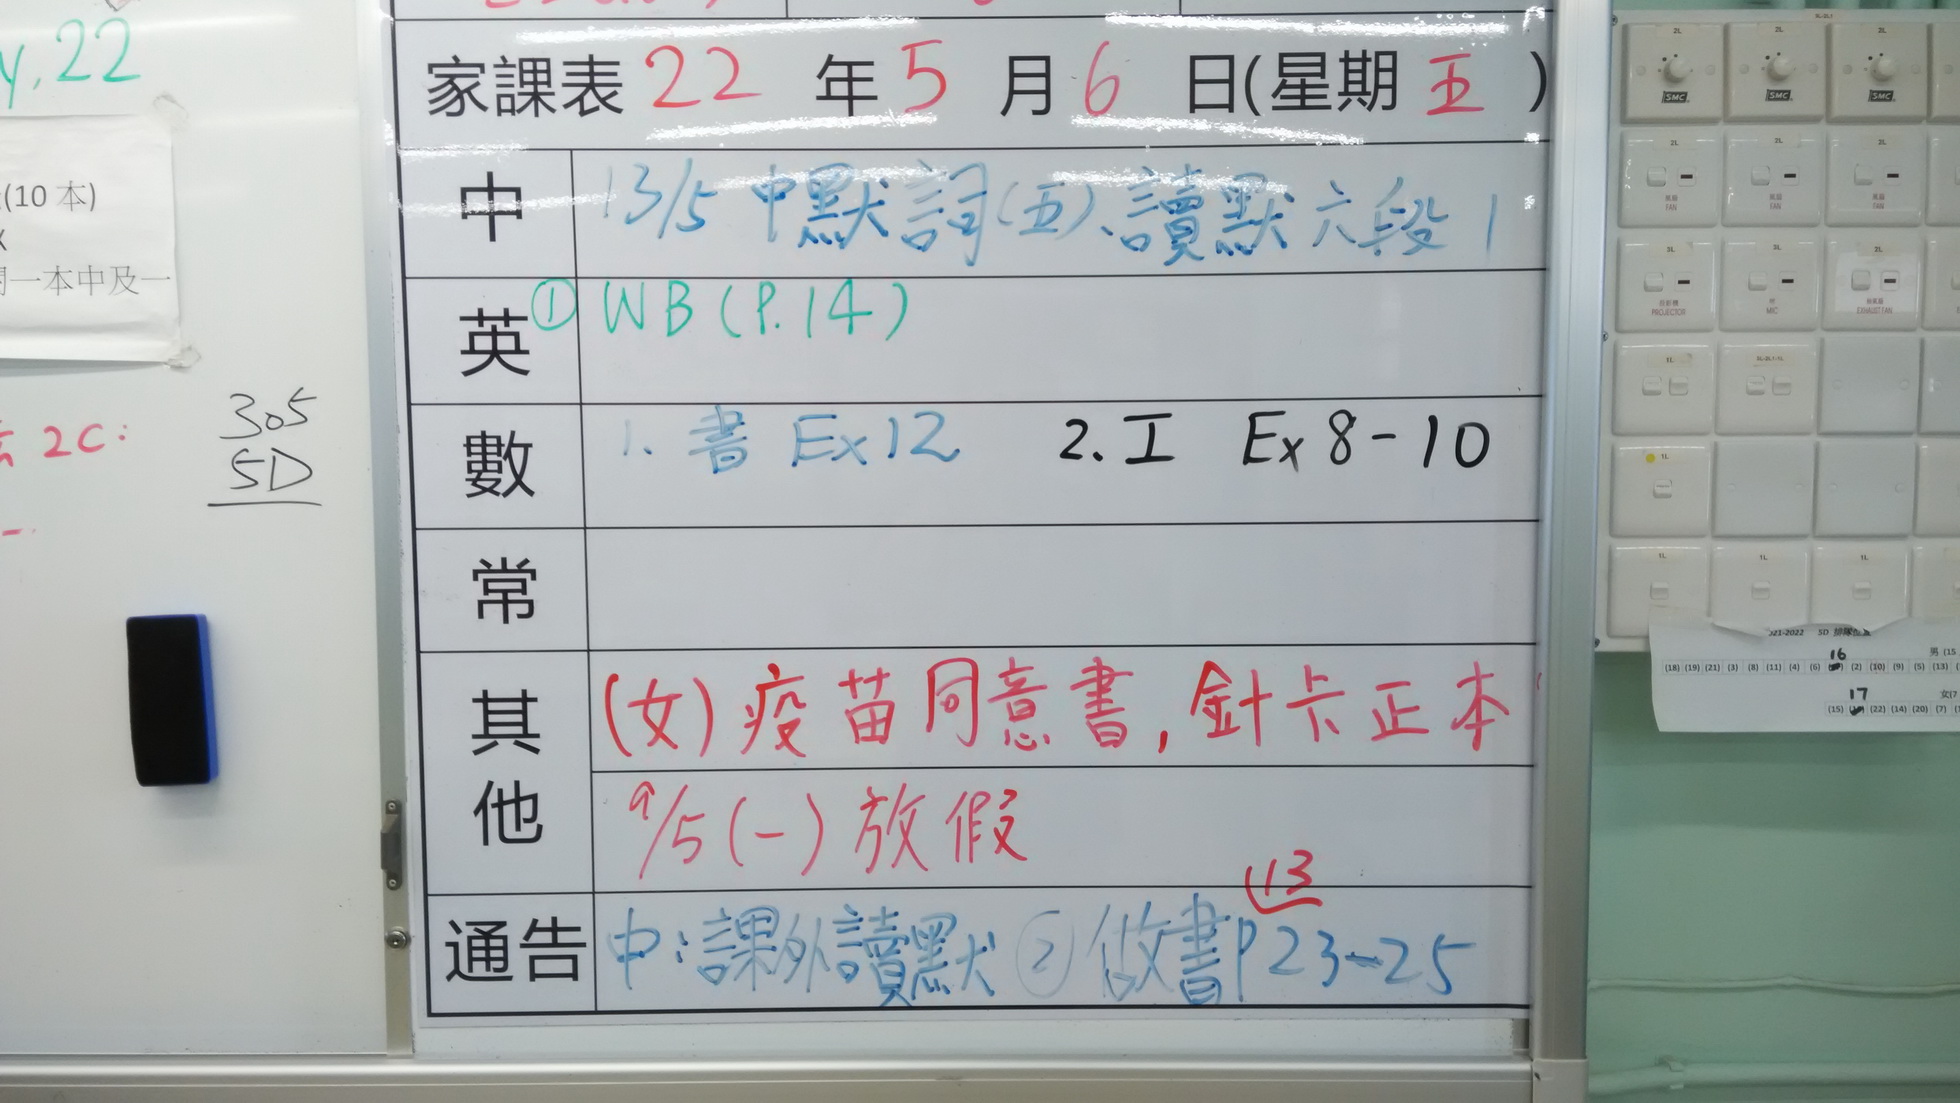 y,22
(10 本)
一本中及一
2C:
305
5D
家課表 22 年 5 月 6 日(星期 五 )
中 13/5 中默詞(五)、讀默六段1
英 ① WB (P.14)
數 1. 書 Ex 12 2. 工 Ex 8-10
常
其他 (女) 疫苗同意書, 針卡正本
9/5 (一) 放假
13
通告 中:課外讀默 ② 做書P23-25
2L 2L 2L
SMC SMC SMC
2L 2L 2L
風扇 風扇 風扇
FAN FAN FAN
3L 3L 2L
投影機 咪 抽氣扇
PROJECTOR MIC EXHAUST FAN
1L
1L
1L 1L 1L
021-2022 5D 排隊位置
男 (15
16
(18) (19) (21) (3) (8) (11) (4) (6) (2) (10) (9) (5) (13)
17 女(7
(15) (22) (14) (20) (7)